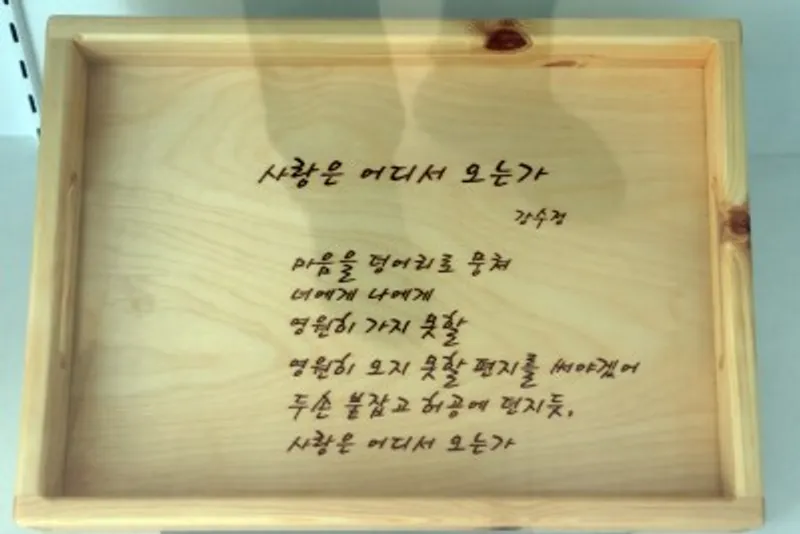 사랑은 어디서 오는가
강수정
마음을 덩어리로 뭉쳐
너에게 나에게
영원히 가지 못할
영원히 오지 못할 편지를 써야겠어
두손 붙잡고 허공에 던지듯,
사랑은 어디서 오는가